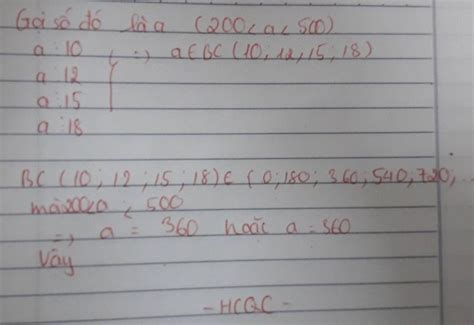 Gọi số đó là a (200 < a < 500)
a : 10
a : 12
a : 15
a : 18
=> a ∈ BC (10; 12, 15, 18)
BC (10 ; 12 ; 15 ; 18) ∈ {0; 180; 360; 540; 720; ...
mà 200 < a < 500
=> a = 360 hoặc a = 360
Vậy
- HCQC -